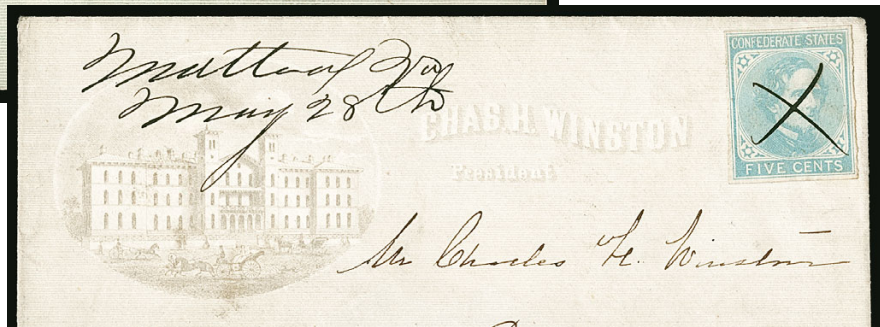 Mattoax Va
May 28th
CHAS. H. WINSTON
President
CONFEDERATE STATES
FIVE CENTS
Mr Charles H. Winston